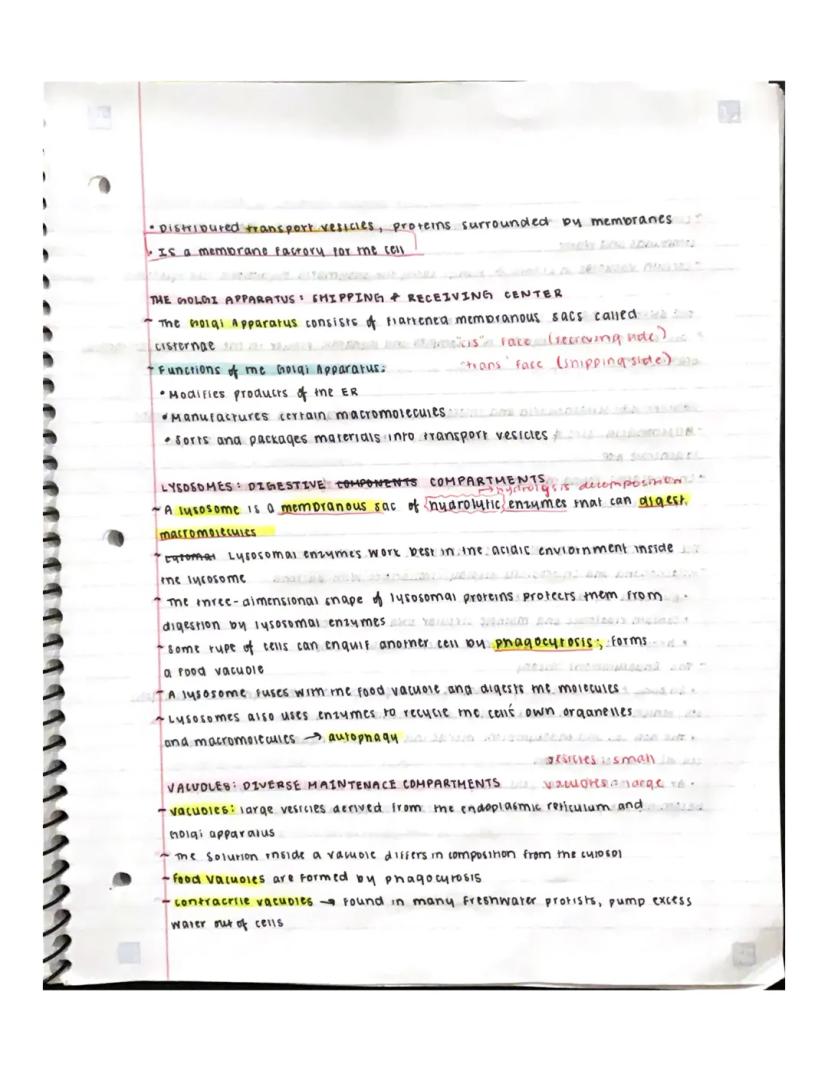 • Distributed transport vesicles, proteins surrounded by membranes
• Is a membrane factory for the cell
THE GOLGI APPARATUS: SHIPPING & RECEIVING CENTER
~ The Golgi Apparatus consists of flattened membranous sacs called
cisternae "cis" face (recieving side)
~ Functions of the Golgi Apparatus: "trans" face (shipping side)
• Modifies products of the ER
• Manufactures certain macromolecules
• Sorts and packages materials into transport vesicles
LYSOSOMES: DIGESTIVE COMPONENTS COMPARTMENTS
→ hydrolysis decomposition
~ A lysosome is a membranous sac of hydrolytic enzymes that can digest
macromolecules
~ Lysosomal enzymes work best in the acidic enviornment inside
the lysosome
~ The three-dimensional shape of lysosomal proteins protects them from
digestion by lysosomal enzymes
~ Some type of cells can engulf another cell by phagocytosis; forms
a food vacuole
~ A lysosome fuses with the food vacuole and digests the molecules
~ Lysosomes also uses enzymes to recycle the cell's own organelles
and macromolecules → autophagy
vesicles: small
VACUOLES: DIVERSE MAINTENACE COMPARTMENTS vacuoles: large
~ Vacuoles: large vesicles derived from the endoplasmic reticulum and
Golgi apparatus
~ The solution inside a vacuole differs in composition from the cytosol
~ Food vacuoles are formed by phagocytosis
~ Contractile vacuoles → found in many freshwater protists, pump excess
water out of cells